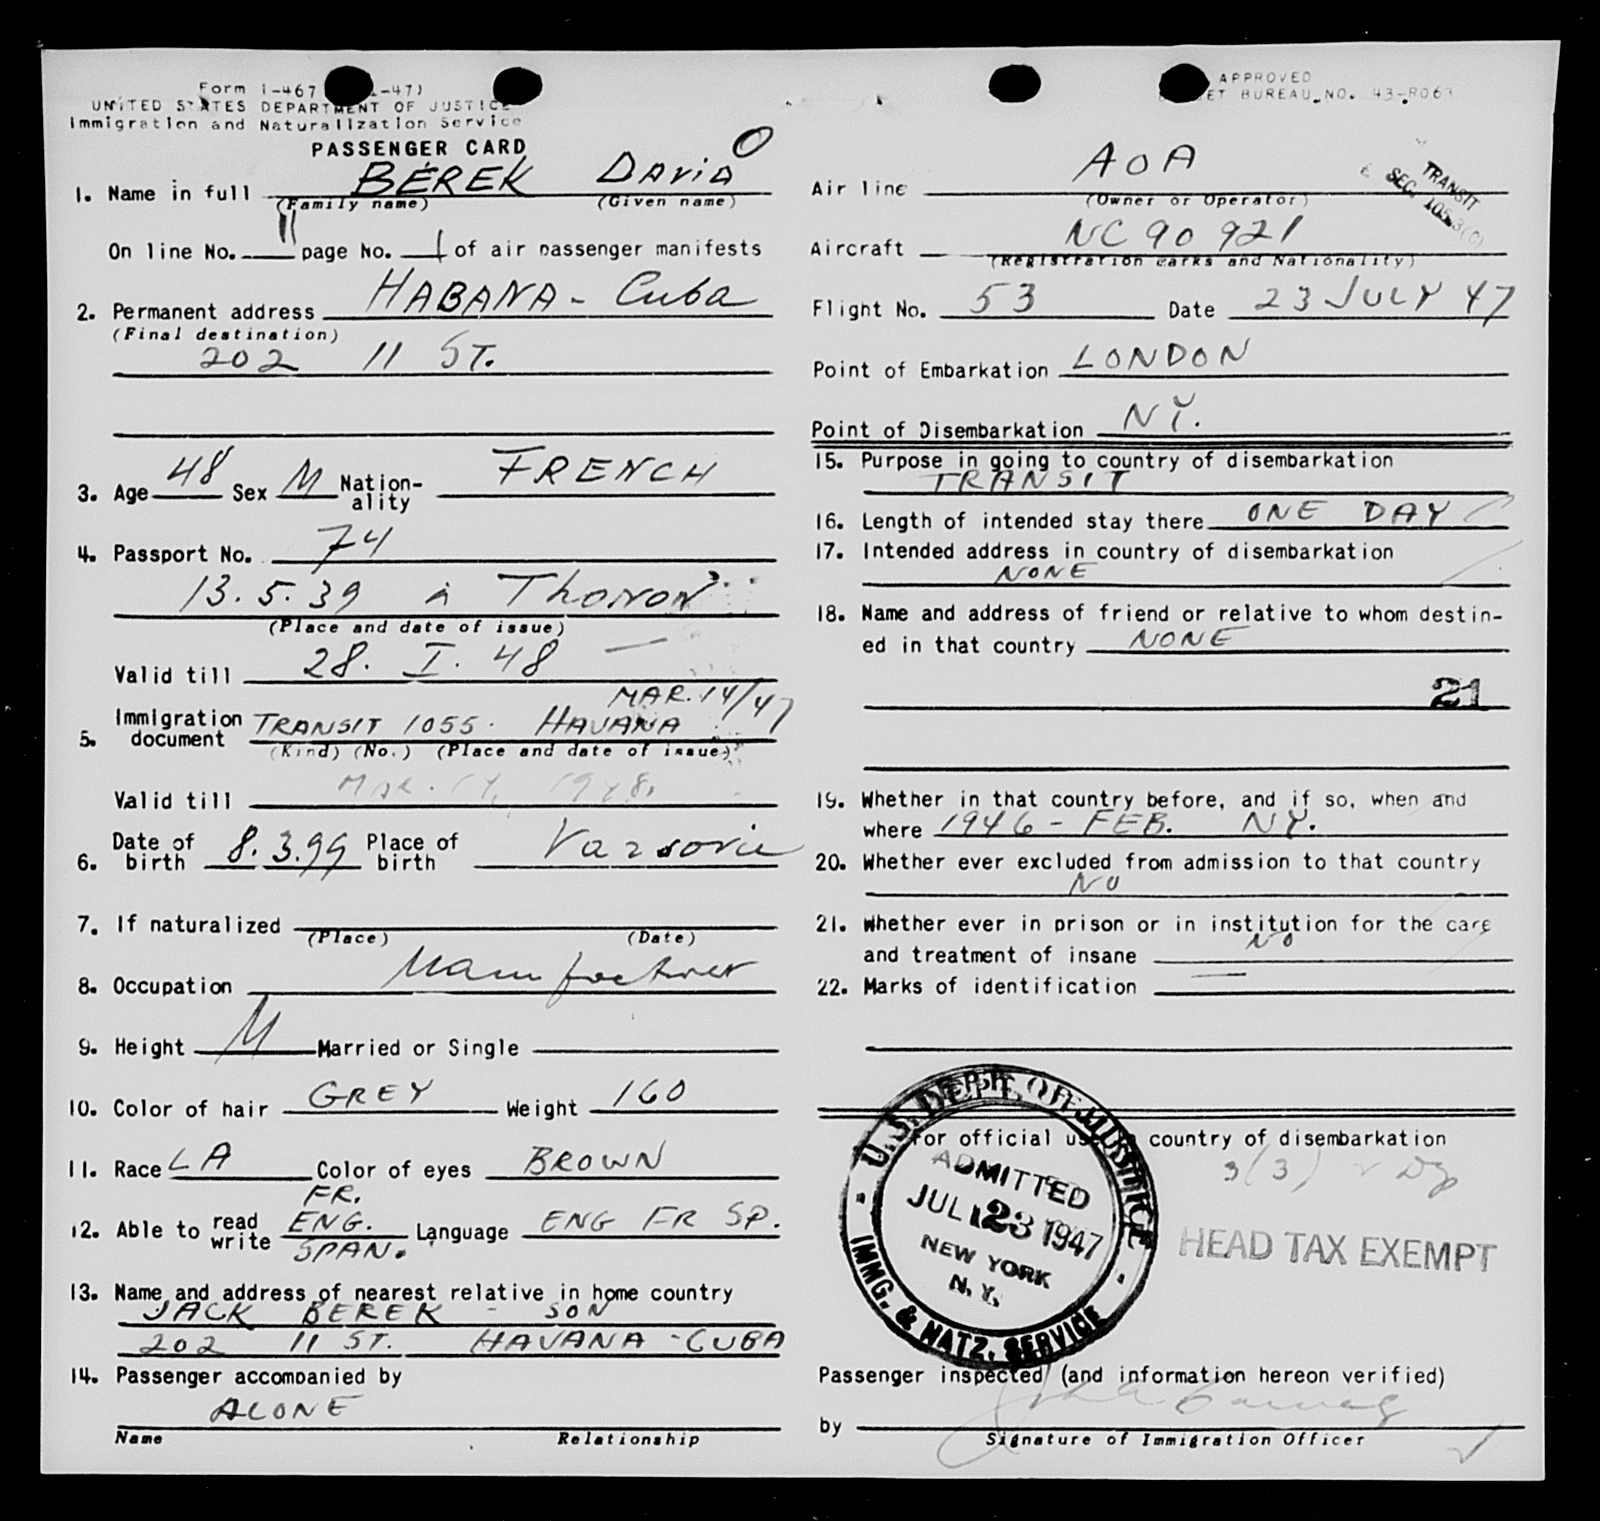 Form I-467 -47)
UNITED STATES DEPARTMENT OF JUSTICE
Immigration and Naturalization Service
PASSENGER CARD
1. Name in full BEREK David O
(Family name) (Given name)
On line No. 11 page No. 1 of air passenger manifests
2. Permanent address HABANA - Cuba
(Final destination)
202 11 ST.
3. Age 48 Sex M Nation-ality FRENCH
4. Passport No. 74
13.5.39 à Thonon
(Place and date of issue)
Valid till 28. I. 48
MAR. 14/47
5. Immigration document TRANSIT 1055. HAVANA
(Kind) (No.) (Place and date of issue)
Valid till MAR. 14, 1948.
6. Date of birth 8.3.99 Place of birth Varsovie
7. If naturalized
(Place) (Date)
8. Occupation Manufacturer
9. Height M Married or Single
10. Color of hair GREY Weight 160
11. Race LA Color of eyes BROWN
12. Able to read write FR. ENG. SPAN. Language ENG FR SP.
13. Name and address of nearest relative in home country
JACK BEREK - SON
202 11 ST. HAVANA - CUBA
14. Passenger accompanied by
ALONE
Name Relationship
APPROVED
BUREAU NO. 43-R063
TRANSIT
SEC. 105.3(C)
Air line AOA
(Owner or Operator)
Aircraft NC 90 921
(Registration marks and Nationality)
Flight No. 53 Date 23 JULY 47
Point of Embarkation LONDON
Point of Disembarkation NY.
15. Purpose in going to country of disembarkation
TRANSIT
16. Length of intended stay there ONE DAY
17. Intended address in country of disembarkation
NONE
18. Name and address of friend or relative to whom destin-
ed in that country NONE
21
19. Whether in that country before, and if so, when and
where 1946 - FEB. NY.
20. Whether ever excluded from admission to that country
NO
21. Whether ever in prison or in institution for the care
and treatment of insane NO
22. Marks of identification —
For official use country of disembarkation
3(3)
U.S. DEPT. OF JUSTICE
ADMITTED
JUL 23 1947
NEW YORK
N.Y.
IMMG. & NATZ. SERVICE
HEAD TAX EXEMPT
Passenger inspected (and information hereon verified)
by
Signature of Immigration Officer